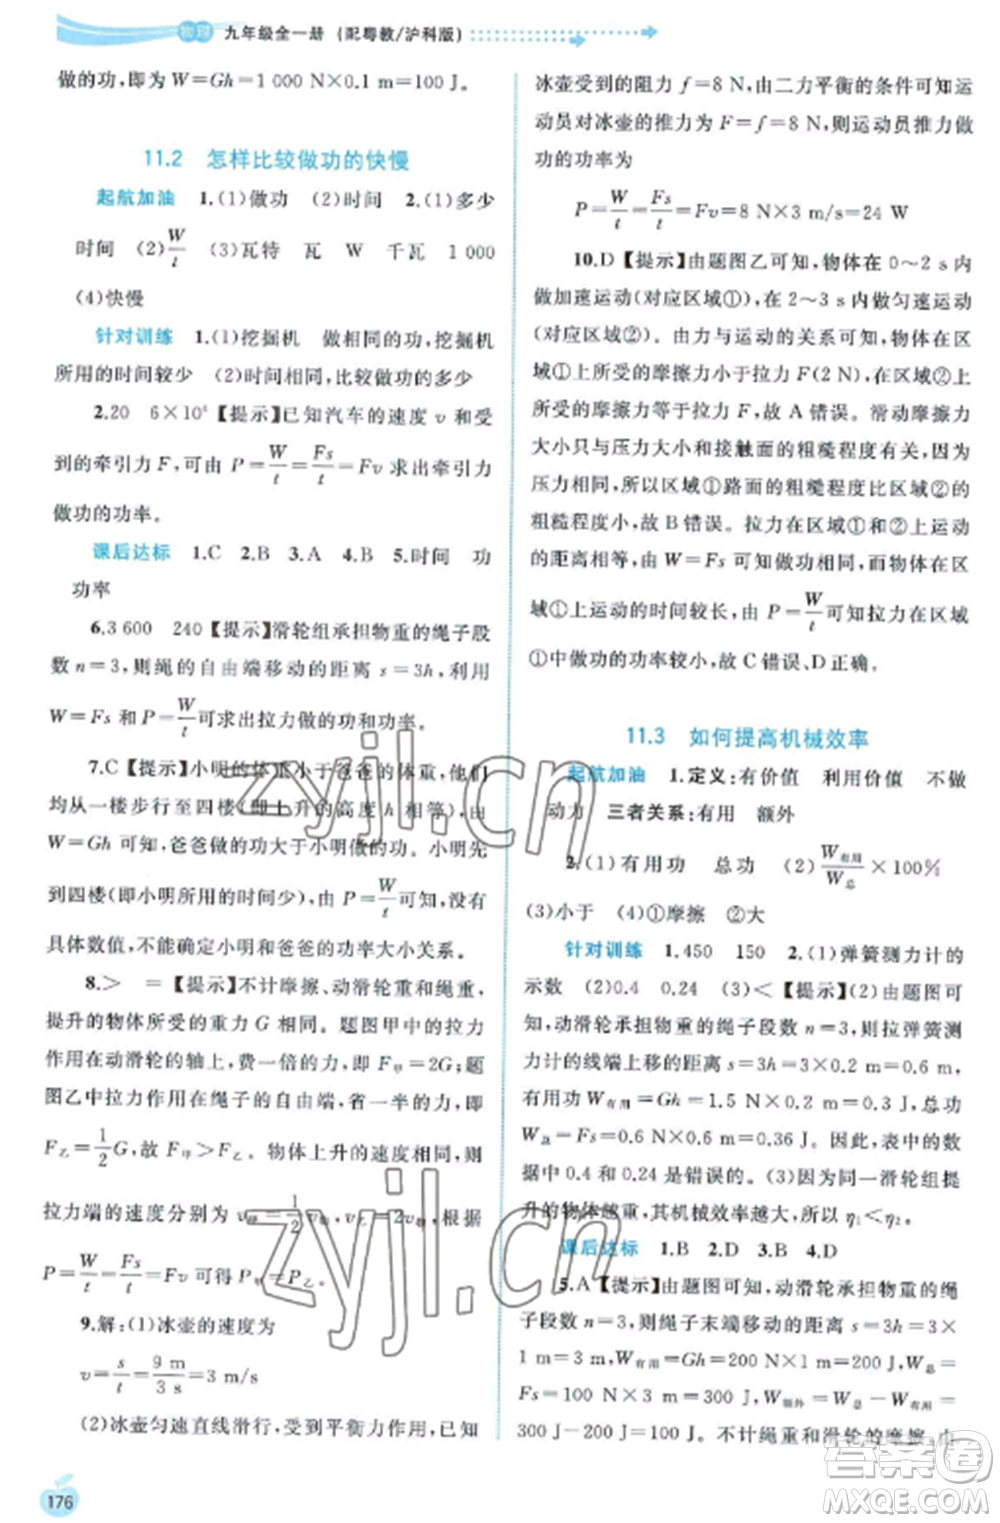 物理 九年级全一册 (配粤教/沪科版)
做的功,即为 W=Gh=1 000 N×0.1 m=100 J。
11.2 怎样比较做功的快慢
起航加油 1.(1)做功 (2)时间 2.(1)多少
时间 (2)W/t (3)瓦特 瓦 W 千瓦 1 000
(4)快慢
针对训练 1.(1)挖掘机 做相同的功,挖掘机
所用的时间较少 (2)时间相同,比较做功的多少
2.20 6×10⁴【提示】已知汽车的速度 v 和受
到的牵引力 F,可由 P=W/t=Fs/t=Fv 求出牵引力
做功的功率。
课后达标 1.C 2.B 3.A 4.B 5.时间 功
功率
6.3 600 240【提示】滑轮组承担物重的绳子段
数 n=3,则绳的自由端移动的距离 s=3h,利用
W=Fs 和 P=W/t可求出拉力做的功和功率。
7.C【提示】小明的体重小于爸爸的体重,他们
均从一楼步行至四楼(即上升的高度 h 相等),由
W=Gh 可知,爸爸做的功大于小明做的功。小明先
到四楼(即小明所用的时间少),由于 P=W/t,没有
具体数值,不能确定小明和爸爸的功率大小关系。
8.> =【提示】不计摩擦、动滑轮重和绳重,
提升的物体所受的重力 G 相同。题图甲中的拉力
作用在动滑轮的轴上,费一倍的力,即 F甲=2G;题
图乙中拉力作用在绳子的自由端,省一半的力,即
F乙=1/2G,故 F甲>F乙。物体上升的速度相同,则
拉力端的速度分别为 v甲=1/2v物,v乙=2v物,根据
P=W/t=Fs/t=Fv 可得 P甲=P乙。
9.解:(1)冰壶的速度为
v=s/t=9 m/3 s=3 m/s
(2)冰壶匀速直线滑行,受到平衡力作用,已知
176
冰壶受到的阻力 f=8 N,由二力平衡的条件可知运
动员对冰壶的推力为 F=f=8 N,则运动员推力做
功的功率为
P=W/t=Fs/t=Fv=8 N×3 m/s=24 W
10.D【提示】由题图乙可知,物体在 0~2 s内
做加速运动(对应区域①),在 2~3 s 做匀速运动
(对应区域②)。由力与运动的关系可知,物体在区
域①上所受的摩擦力小于拉力 F(2 N),在区域②上
所受的摩擦力等于拉力 F,故 A 错误。滑动摩擦力
大小只与压力大小和接触面的粗糙程度有关,因为
压力相同,所以区域①路面的粗糙程度比区域②的
粗糙程度小,故 B 错误。拉力在区域①、②上运动
的距离相等,由 W=Fs 可知做功相同,而物体在区
域①上运动的时间较长,由 P=W/t可知拉力在区域
①中做功的功率较小,故 C 错误、D 正确。
11.3 如何提高机械效率
起航加油 1.定义:有价值 利用价值 不做
动力 三者关系:有用 额外
2.(1)有用功 总功 (2)W有用/W总×100%
(3)小于 (4)①摩擦 ②大
针对训练 1.450 150 2.(1)弹簧测力计的
示数 (2)0.4 0.24 (3)<【提示】(2)由题图可
知,动滑轮承担物重的绳子段数 n=3,则拉弹簧测
力计的线端上移的距离 s=3h=3×0.2 m=0.6 m,
有用功 W有用=Gh=1.5 N×0.2 m=0.3 J,总功
W总=Fs=0.6 N×0.6 m=0.36 J。因此,表中的
数据 0.4 和 0.24 是错误的。(3)因为同一滑轮组提
升的物体越重,其机械效率越大,所以 η₁<η₂。
课后达标 1.B 2.D 3.B 4.D
5.A【提示】由题图可知,动滑轮承担物重的绳
子段数 n=3,则绳子末端移动的距离 s=3h=3×
1 m=3 m,W有用=Gh=200 N×1 m=200 J,W总=
Fs=100 N×3 m=300 J,W额外=W总-W有用=
300 J-200 J=100 J。不计绳重和滑轮的摩擦,由
zyjl.cn
zyjl.cn
答案圈
MXQE.COM